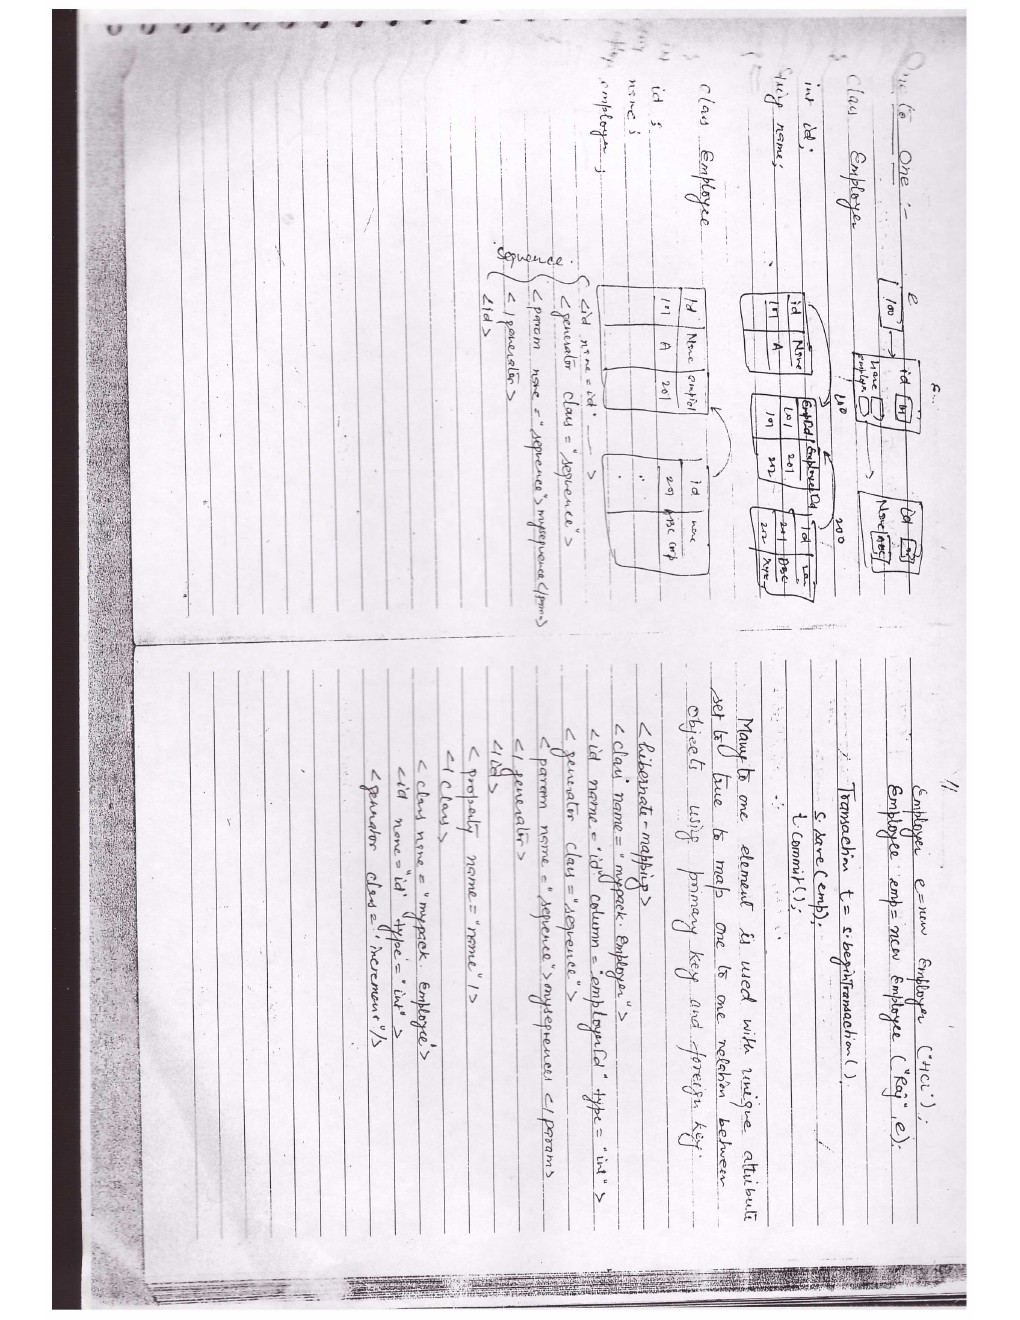 One to One :-
class Employer
int id;
String name;
class Employee
id ;
name ;
employer ;
e
100
id 101
name
employer
100
id
Name ABC
200
id Name
101 A
EmpId EmployerId
101 201
101 202
id
201 ABC
202 xyz
Id Name empId
101 A 201
id name
201 ABC cmp
sequence
<id name = id" ---- >
<generator class = "sequence">
<param name = "sequence"> mysequence </param>
</generator>
</id>
Employer e = new Employer ("HCL");
Employee emp = new Employee ("Raj", e);
Transaction t = s.beginTransaction().
s.save(emp);
t.commit();
Many to one element is used with unique attribute
set to true to map one to one relation between
objects using primary key and foreign key.
<hibernate-mapping>
<class name = "mypack. Employer">
<id name = "id" column = "employerId" type = "int">
<generator class = "sequence">
<param name = "sequence"> mysequences </param>
</generator>
</id>
<property name = "name"/>
</class>
<class name = "mypack. Employee">
<id name = "id" type = "int">
<generator class = "increment"/>